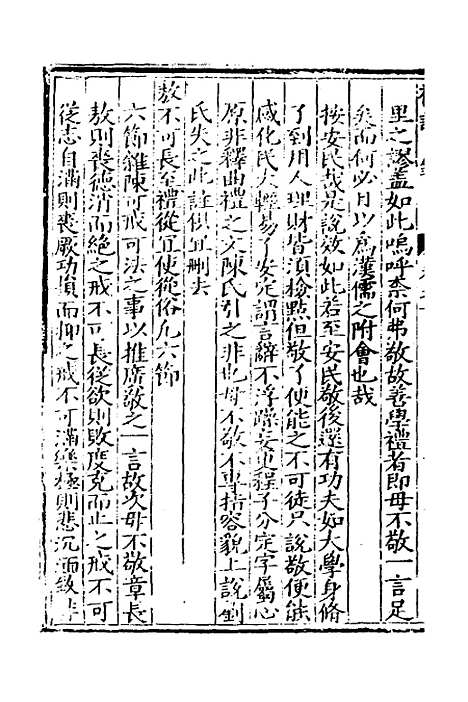 里之謬蓋如此嗚呼柰何弗敬故善學禮者即毋不敬一言足
矣而何必目以爲漢儒之附會也哉
按安民哉是說效如此若至安民敬後還有功夫如大學身脩
了到用人理財皆須檢點但敬了便能之不可徒只說敬便能
感化民大輕易了安定謂言辭不浮躁妄更程子分定字屬心
原非釋曲禮之文陳氏引之非也毋不敬不專指容貌上說劉
氏失之此註俱宜刪去
敖不可長至禮從宜使從俗凡六節
六節雜陳可戒可法之事以推廣敬之一言故次毋不敬章長
敖則喪德消而絕之戒不可長從欲則敗度克而止之戒不可
從志自滿則喪厥功損而抑之戒不可滿樂極則悲沉而